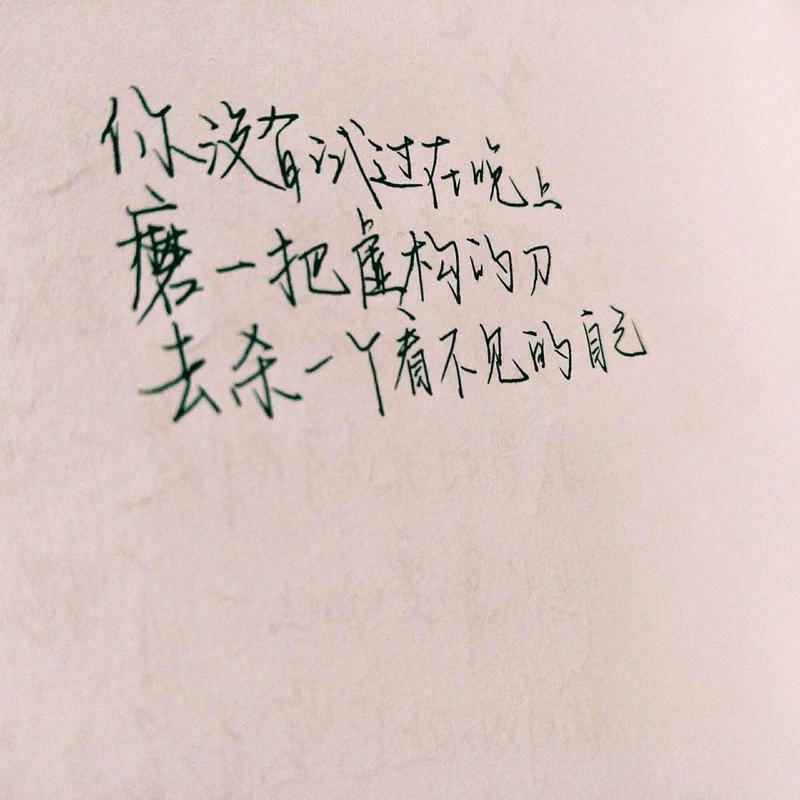 你没有试过在晚上
磨一把虚构的刀
去杀一个看不见的自己